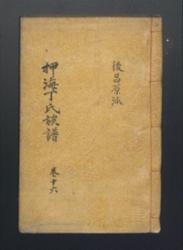 後昌原派
押海丁氏族譜
卷十六